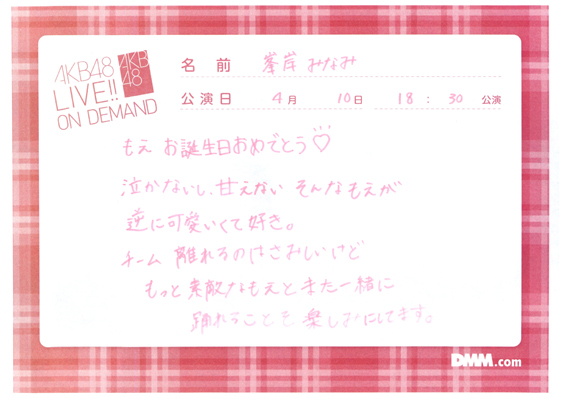 AKB48
LIVE!!
ON DEMAND
AKB
48
名前 峯岸みなみ
公演日 4月 10日 18:30 公演
もえ お誕生日おめでとう♡
泣かないし、甘えない そんなもえが
逆に可愛いくて好き。
チーム 離れるのはさみしいけど
もっと素敵なもえとまた一緒に
踊れることを楽しみにしてます。
DMM.com